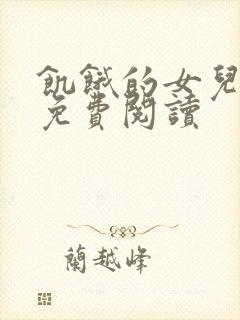 飢餓的女兒
免費閱讀
蘭越峰